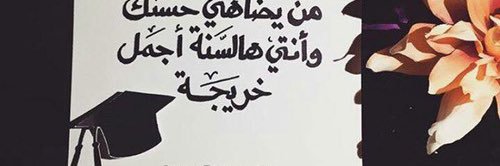 من يضاهي حسنك
وأنتي هالسَّنة أجمل
خريجَة